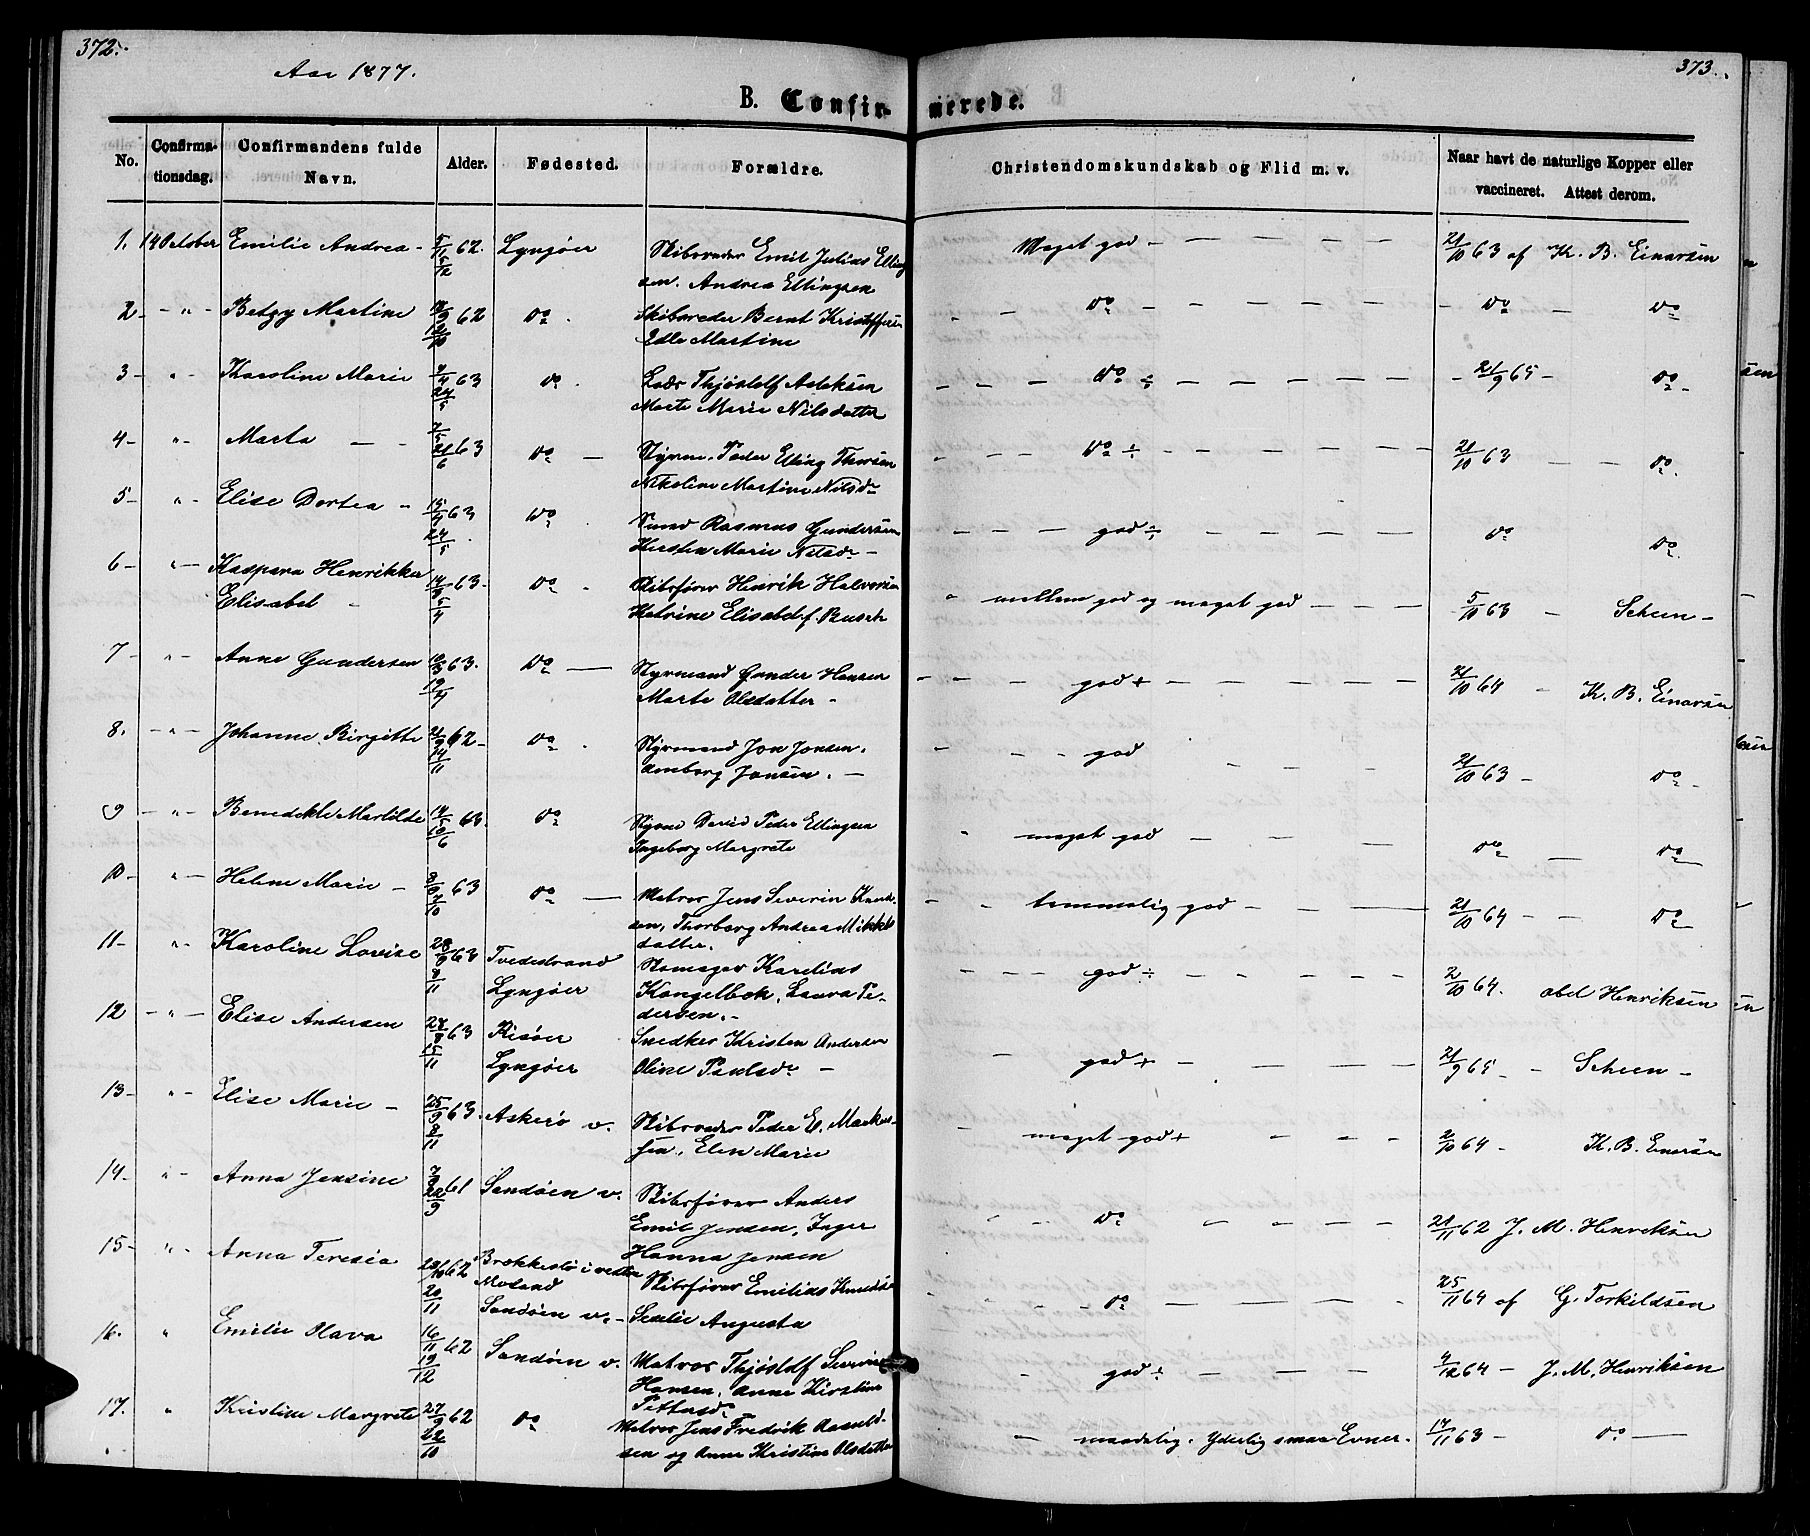 372.
373.
Aar 1877.
B. Confirmerede.
No. Confirmationsdag. Confirmandens fulde Navn. Alder. Fødested. Forældre. Christendomskundskab og Flid m. v. Naar havt de naturlige Kopper eller vaccineret. Attest derom.
1. 14 October Emilie Andrea - 62. Lyngøer Skibsreder Emil Julius Elling Meget god - 21/10 63 af K. B. Einarsen
sen. Andrea Ellingsen
2 - " - Betzy Martine 62 Do Skibsreder Bernt Kristoffersen Do - Do - Do
12/10 Edle Martine
3 - " - Karoline Marie 63 Do Lods Thjøstolf Aslaksen Do ÷ - 21/9 65 - Do -
24/5 Marte Marie Nilsdatter
4 - " - Marta - 63 Do - Styrm. Peder Elling Thorsen Do ÷ 21/10 63 - Do.
21/6 Nikoline Martine Nilsdr
5 - " - Elise Dortea 15/4 63 Do Smed Rasmus Gundersen god ÷ Do Do.
24/5 Kirsten Marie Nilsdr -
6 - " - Kaspara Henrikka 63 - Do Skibsfører Henrik Halvorsen mellem god og meget god 5/10 63 - Scheen -
Elisabet - Katrine Elisabet f. Busch
7 - " - Anne Gundersen 63. Do - Styrmand Gunder Hansen god + 21/10 64 - K. B. Einarsen
Marte Olsdatter -
8. - " - Johanne Birgitte 62 - Do Styrmand Jon Jonsen. god 21/10 63 - Do -
Amborg Jonsen. -
9 - " - Benedikte Matilde 63. Do Styrm David Peder Ellingsen meget god Do - Do
10/6 Ingeborg Margrete
10 - " - Helene Marie - 63 Do - Matros Jens Severin Knud- temmelig god - 21/10 64 - - Do
sen, Thorborg Andrea Mikkels
datter.
11 - " - Karoline Lovise 63 Tvedestrand Skomager Karelius god ÷ 2/10 64. abel Henriksen
Lyngøer Kongelbek, Laura Pe-
dersen. -
12 - " - Elise Andersen 63 Risøer Snedker Kristen Andersen god + 21/9 65 - Scheen -
Lyngøer Oline Paulsdr -
13 - " - Elise Marie - 25/9 63. Askerø v. Skibsreder Peder E. Markus- meget god + 2/10 64 - K. B. Einersen
8/11 sen, Elen Marie
14 - " - Anna Jensine 61 Sandøen v. Skibsfører Anders Do 21/11 62 J. M. Henriksen
Emil Jensen, Inger
Hanna Jensen
15 - " - Anna Teresia 62 Brækkestø i vestre Skibsfører Emilius Knudsen Do 25/11 64 af G. Torkildsen
Moland
20/11 Sandøen v. - Severine Augusta
16. " Emilie Olava 16/11 62 Sandøen v. Matros Thjøstolf Severin god ÷ 4/12 64 - J. M. Henriksen
19/12 Hansen, Anne Kirstine
17. " Kristine Margrete 27/9 62 Do Matros Jens Fredrik maadelig. Yderlig smaa Evner. 17/11 63 - Do -
22/10 sen og Anne Kristine Olsdatter